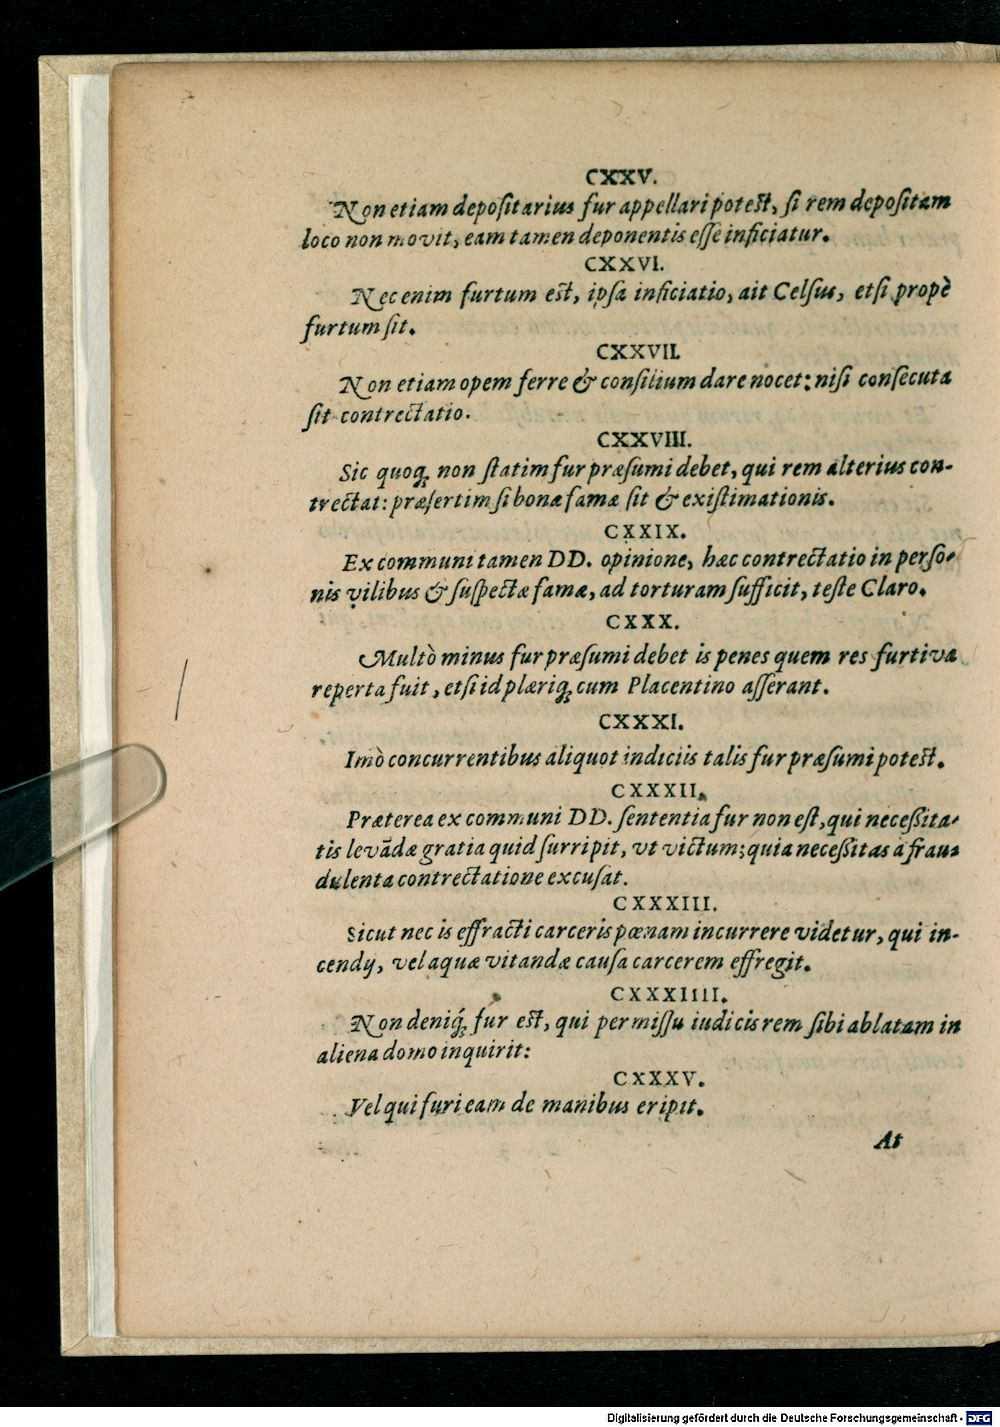 CXXV.
Non etiam depoſitarius fur appellari poteſt, ſi rem depoſitam
loco non movit, eam tamen deponentis eſſe inficiatur.
CXXVI.
Nec enim furtum eſt, ipſa inficiatio, ait Celſus, etſi propè
furtum ſit.
CXXVII.
Non etiam opem ferre & conſilium dare nocet: niſi conſecuta
ſit contrectatio.
CXXVIII.
Sic quoq; non ſtatim fur præſumi debet, qui rem alterius con-
trectat: præſertim ſi bonæ famæ ſit & exiſtimationis.
CXXIX.
Ex communi tamen DD. opinione, hæc contrectatio in perſo-
nis vilibus & ſuſpectæ famæ, ad torturam ſufficit, teſte Claro.
CXXX.
Multò minus fur præſumi debet is penes quem res furtiva
reperta fuit, etſi id plæriq; cum Placentino aſſerant.
CXXXI.
Imò concurrentibus aliquot indiciis talis fur præſumi poteſt.
CXXXII.
Præterea ex communi DD. ſententia fur non eſt, qui neceſſita-
tis levãdæ gratia quid ſurripit, vt victum; quia neceſſitas à frau-
dulenta contrectatione excuſat.
CXXXIII.
Sicut nec is effracti carceris pœnam incurrere videtur, qui in-
cendij, vel aquæ vitandæ cauſa carcerem effregit.
CXXXIIII.
Non deniq; fur eſt, qui permiſſu iudicis rem ſibi ablatam in
aliena domo inquirit:
CXXXV.
Vel qui furi eam de manibus eripit.
At
Digitalisierung gefördert durch die Deutsche Forschungsgemeinschaft - DFG